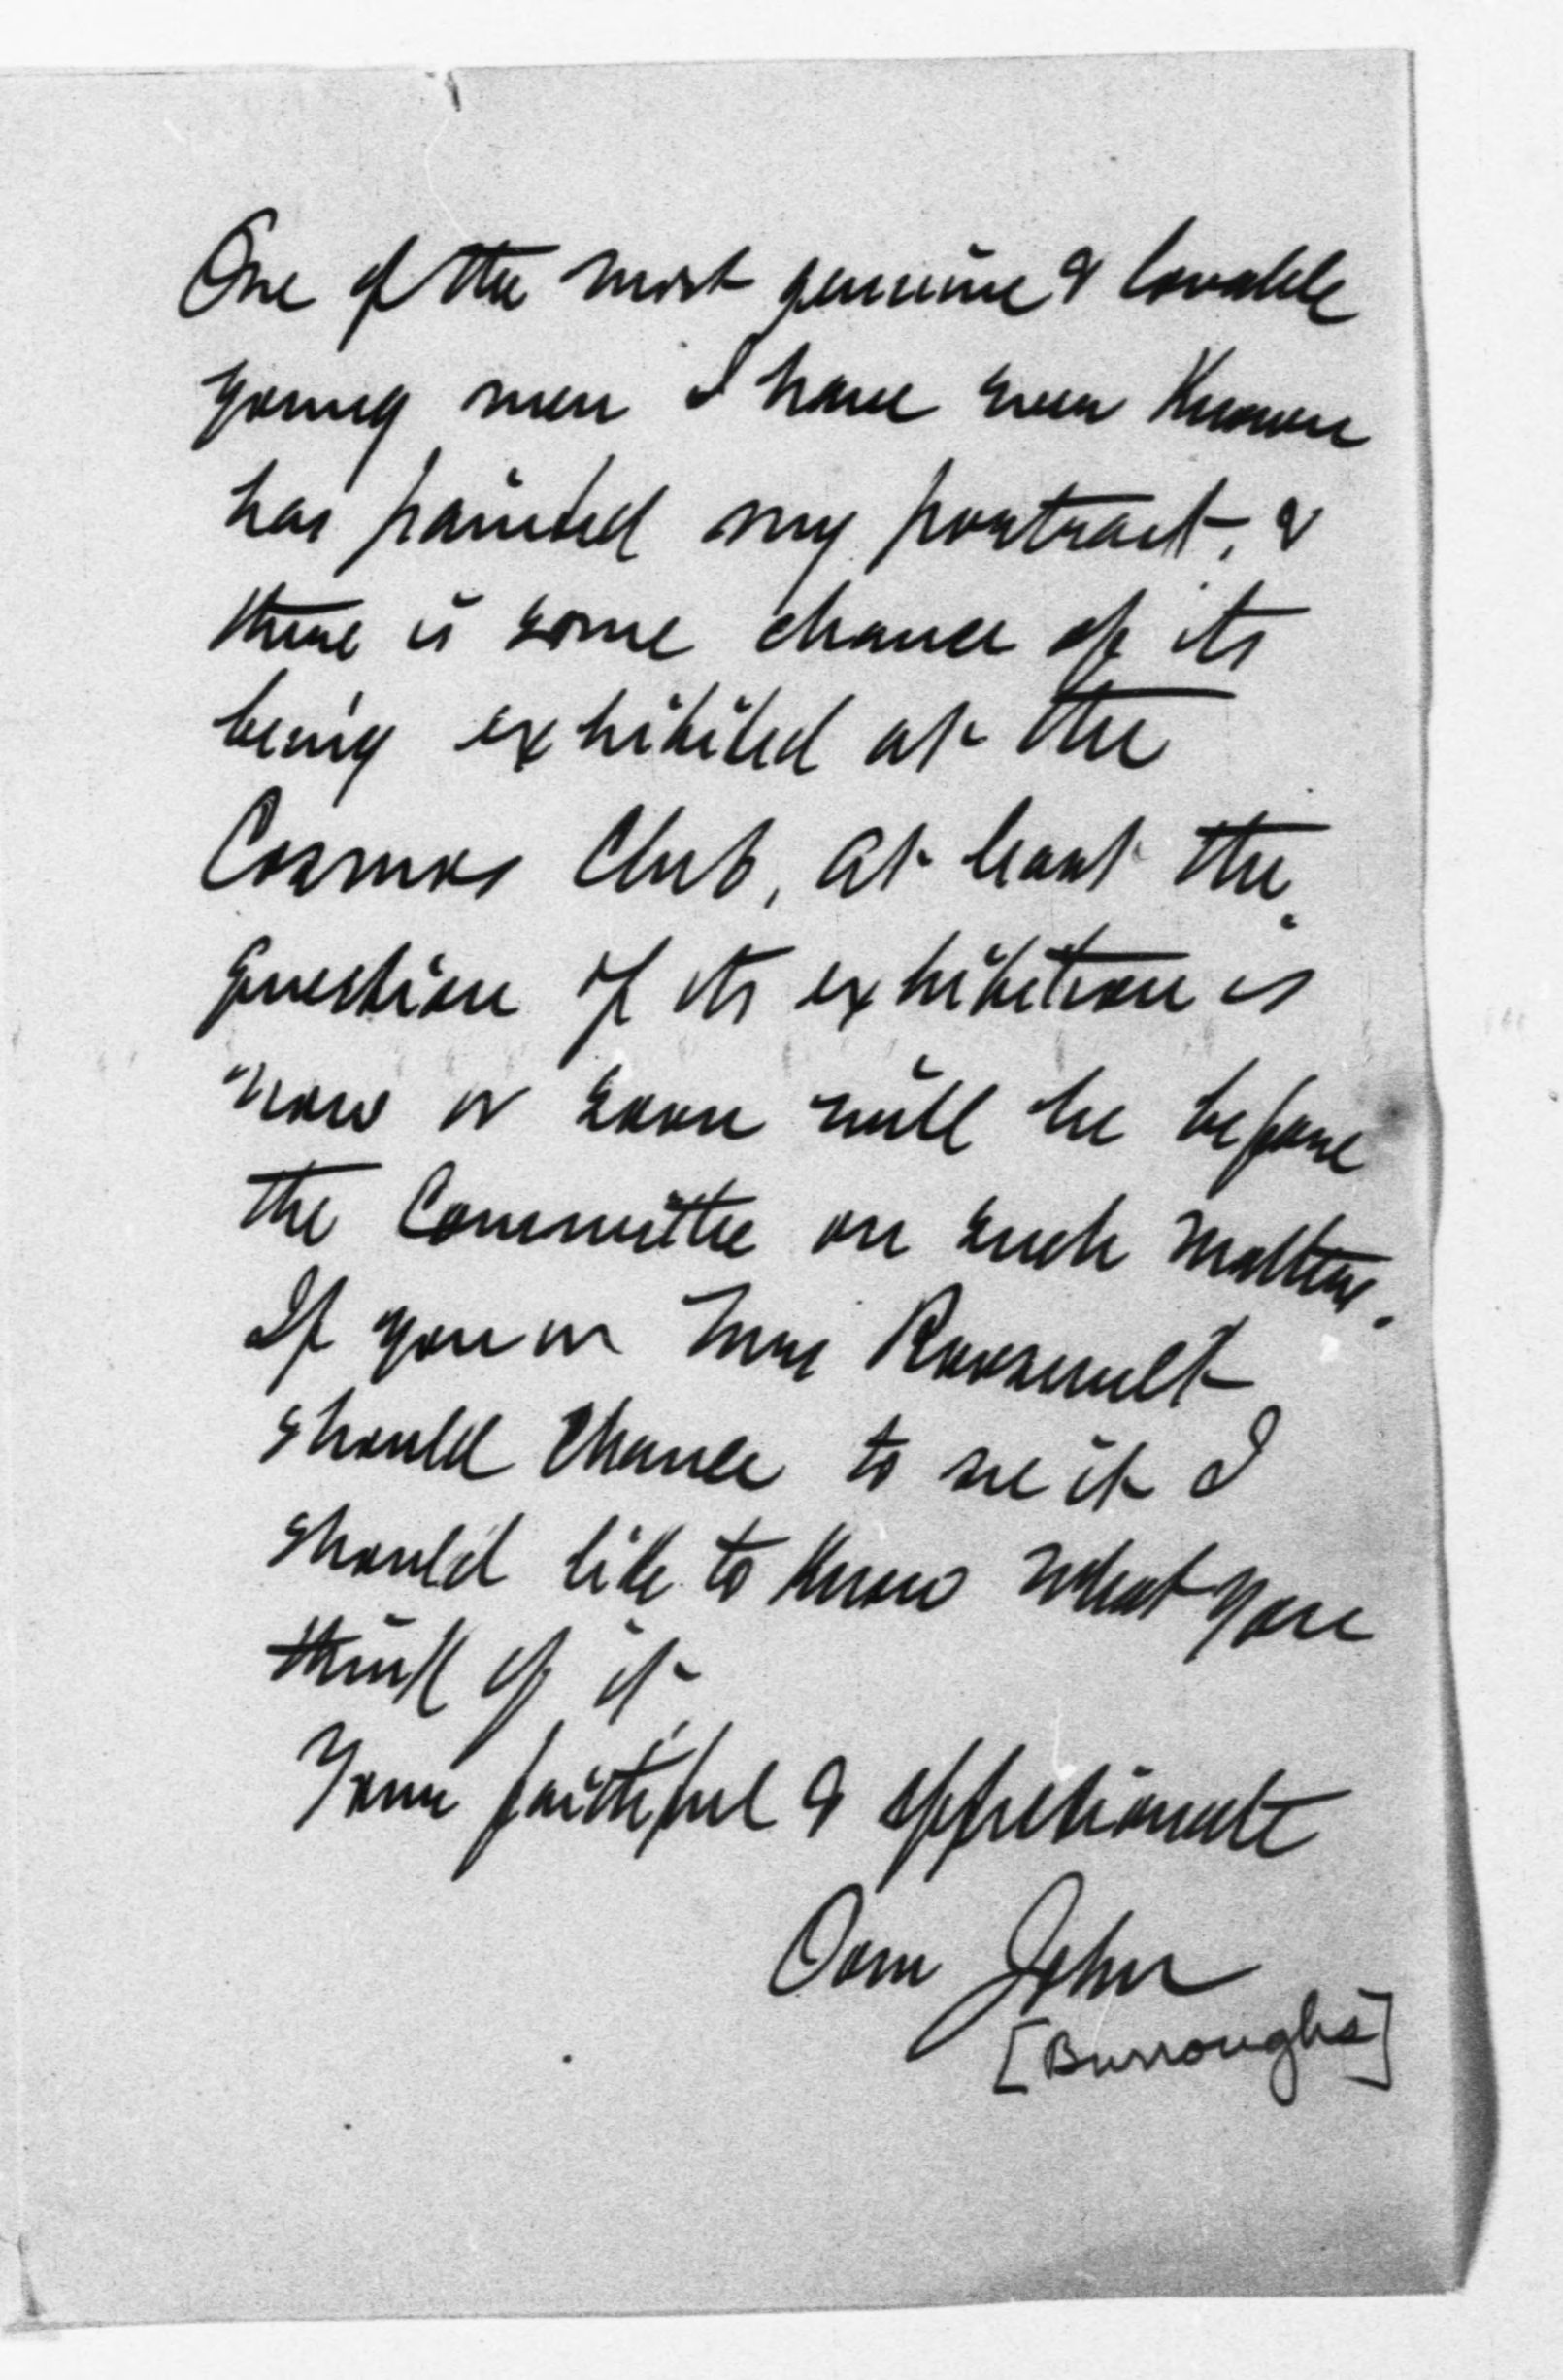 One of the most genuine & lovable
young men I have ever known
has painted my portrait, &
there is some chance of its
being exhibited at the
Cosmos Club, at least the
question of its exhibition is
now or soon will be before
the Committee on such matters.
If you or Mrs Roosevelt
should chance to see it I
should like to know what you
think of it.
Your faithful & affectionate
Oom John
[Burroughs]